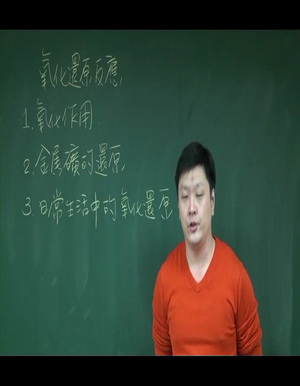 氧化還原反應
1.氧化作用
2.金屬礦的還原
3.日常生活中的氧化還原